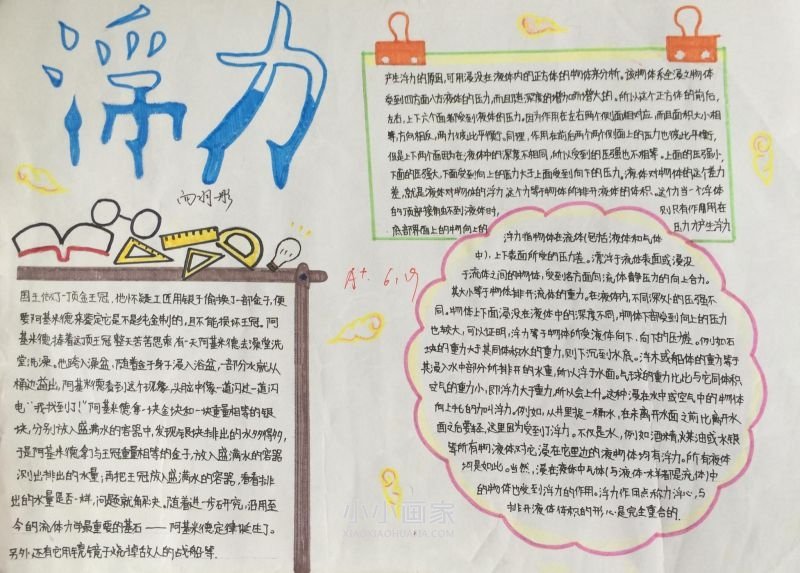 浮力
向羽彤
产生浮力的原因,可用浸没在液体内的正方体的物体来分析。该物体系全浸之物体
受到四方面八方液体的压力,而且随深度的增加而增大的。所以这个正方体的前后,
左右,上下六个面都受到液体的压力。因为作用在左右两个侧面相对应,而且面积大小相
等,方向相反,两力彼此平衡。同理,作用在前后两个侧面上的压力也彼此平衡,
但是上下两个面因为在液体中的深度不相同,所以受到的压强也不相等。上面的压强小,
下面的压强大,下面受到向上的压力大于上面受到向下的压力。液体对物体的这个差力
差,就是液体对物体的浮力,这个力等于物体所排开液体的体积。这个力当一个浮体
的顶部接触不到液体时, 则只有作用在
底部界面上的物向上的 压力才产生浮力
A+ 6.19
国王做了一顶金王冠,他怀疑工匠用银子偷换了一部金子,便
要阿基米德来鉴定它是不是纯金制的,且不能损坏王冠。阿
基米德捧着这顶王冠整天苦苦思索,有一天阿基米德去澡堂洗
空洗澡。他跨入澡盆,随着金子身子浸入浴盆,一部分水就从
桶边溢出,阿基米德看到这个现象,头脑中像一道闪过一道闪
电“我找到了!”阿基米德拿一块金块和一块重量相等的银
块,分别放入盛满水的容器中,发现与银块排出的水多得多,
于是阿基米德拿了与王冠重量相等的金子,放入盛满水的容器
测出排出的水量;再把王冠放入盛满水的容器,看看排
出的水量是否一样,问题就解决。随着进一步研究,沿用至
今的流体力学最重要的基石——阿基米德定律诞生了。
另外还有它用镜镜子烧掉敌人的战船等.
浮力指物体在流体(包括液体和气体
中),上下表面所受的压力差。漂浮于流体表面或浸没
于流体之间的物体,受到各方面向流体静压力的向上合力。
其大小等于物体排开流体的重力。在液体内,不同深处的压强不
同。物体上下面浸没在液体中的深度不同,物体下部受到向上的压力
也较大,可以证明,浮力等于物体所受液体向下、向下的压差。例如石
块的重力大于其同体积水的重力,则下沉到水底。浮木或船体的重力等于
其浸入水中部分所排开的水重,所以浮于水面。气球的重力比比与它同体积
空气的重力小,即浮力大于重力,所以会上升。这种浸在水中或空气中的物体
向上托的力叫浮力。例如,从井里提一桶水,在未离开水面之前比离开水
面之后要轻,这里因为受到了浮力。不仅是水,例如酒精,煤油或水银
等所有物液体对它浸在它里边的液物体均有浮力。所有液体
均是如此。当然,浸在液体中气体(与液体一样都是流体)中
的物体也受到浮力的作用。浮力作用点称为浮心,与
排开液体体积的形心是完全重合的.
小小画家
XIAOXIAOHUAJIA.COM